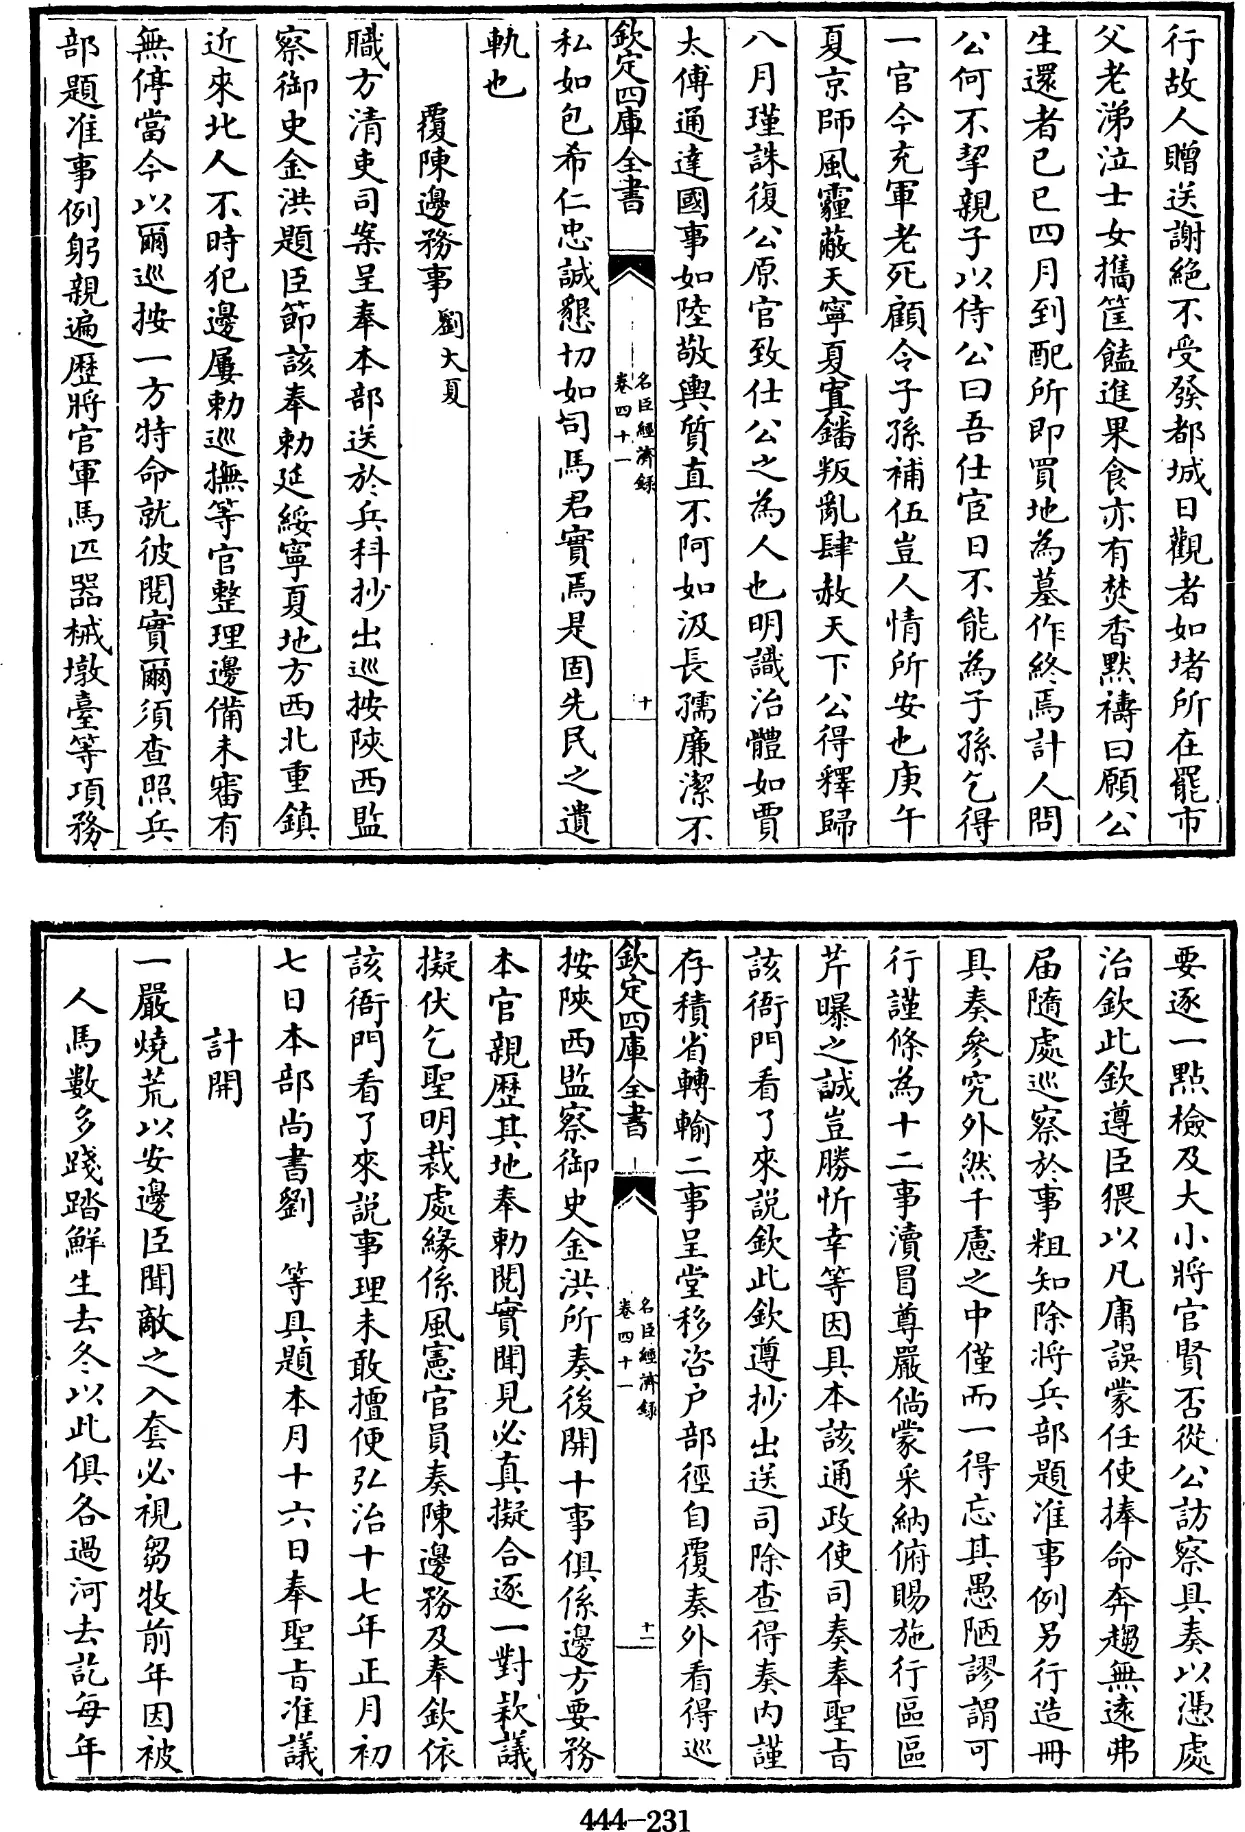 行故人贈送謝絶不受發都城日觀者如堵所在罷市
父老涕泣士女攜筐饁進果食亦有焚香默禱曰願公
生還者已巳四月到配所即買地為墓作終焉計人問
公何不挈親子以侍公曰吾仕宦日不能為子孫乞得
一官今充軍老死顧令子孫補伍豈人情所安也庚午
夏京師風霾蔽天寧夏寘鐇叛亂肆赦天下公得釋歸
八月瑾誅復公原官致仕公之為人也明識治體如賈
太傅通達國事如陸敬輿質直不阿如汲長孺廉潔不
欽定四庫全書
名臣經濟録
卷四十一
十
私如包希仁忠誠懇切如司馬君實焉是固先民之遺
軌也
覆陳邊務事 劉大夏
職方清吏司案呈奉本部送於兵科抄出巡按陜西監
察御史金洪題臣節該奉勅延綏寧夏地方西北重鎮
近來北人不時犯邊屢勅巡撫等官整理邊備未審有
無停當今以爾巡按一方特命就彼閲實爾須查照兵
部題准事例躬親遍歷將官軍馬匹器械墩臺等項務
要逐一點檢及大小將官賢否從公訪察具奏以憑處
治欽此欽遵臣猥以凡庸誤蒙任使捧命奔趨無遠弗
届隨處巡察於事粗知除將兵部題准事例另行造冊
具奏參究外然千慮之中僅而一得忘其愚陋謬謂可
行謹條為十二事瀆冒尊嚴倘蒙采納俯賜施行區區
芹曝之誠豈勝忻幸等因具本該通政使司奏奉聖旨
該衙門看了來説欽此欽遵抄出送司除查得奏内謹
存積省轉輸二事呈堂移咨户部徑自覆奏外看得巡
欽定四庫全書
名臣經濟録
卷四十一
十一
按陜西監察御史金洪所奏後開十事俱係邊方要務
本官親歷其地奉勅閲實聞見必真擬合逐一對欵議
擬伏乞聖明裁處緣係風憲官員奏陳邊務及奉欽依
該衙門看了來説事理未敢擅便弘治十七年正月初
七日本部尚書劉 等具題本月十六日奉聖旨准議
計開
一嚴燒荒以安邊臣聞敵之入套必視芻牧前年因被
人馬數多踐踏鮮生去冬以此俱各過河去訖每年
444-231